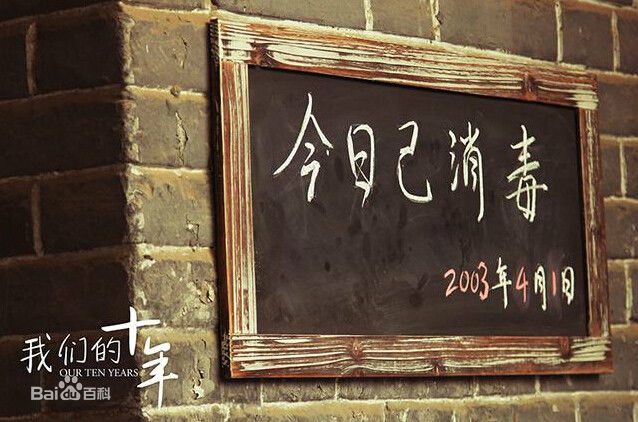 今日已消毒
2003年4月1日
我们的十年
OUR TEN YEARS
Bai百科